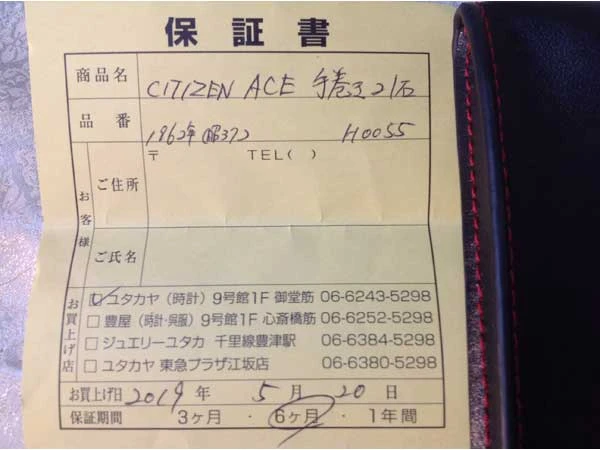 保証書
商品名 CITIZEN ACE 手巻き21石
品番 1962年 (昭37) H0055
お客様
ご住所 〒 TEL( )
ご氏名
お買上げ店
ユタカヤ（時計）9号館1F 御堂筋 06-6243-5298
豊屋（時計・呉服）9号館1F 心斎橋筋 06-6252-5298
ジュエリーユタカ 千里線豊津駅 06-6384-5298
ユタカヤ 東急プラザ江坂店 06-6380-5298
お買上げ日 2019年 5月 20日
保証期間 3ヶ月・6ヶ月・1年間